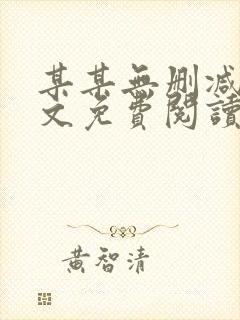 某某無刪減
文免費閱讀
黃智清